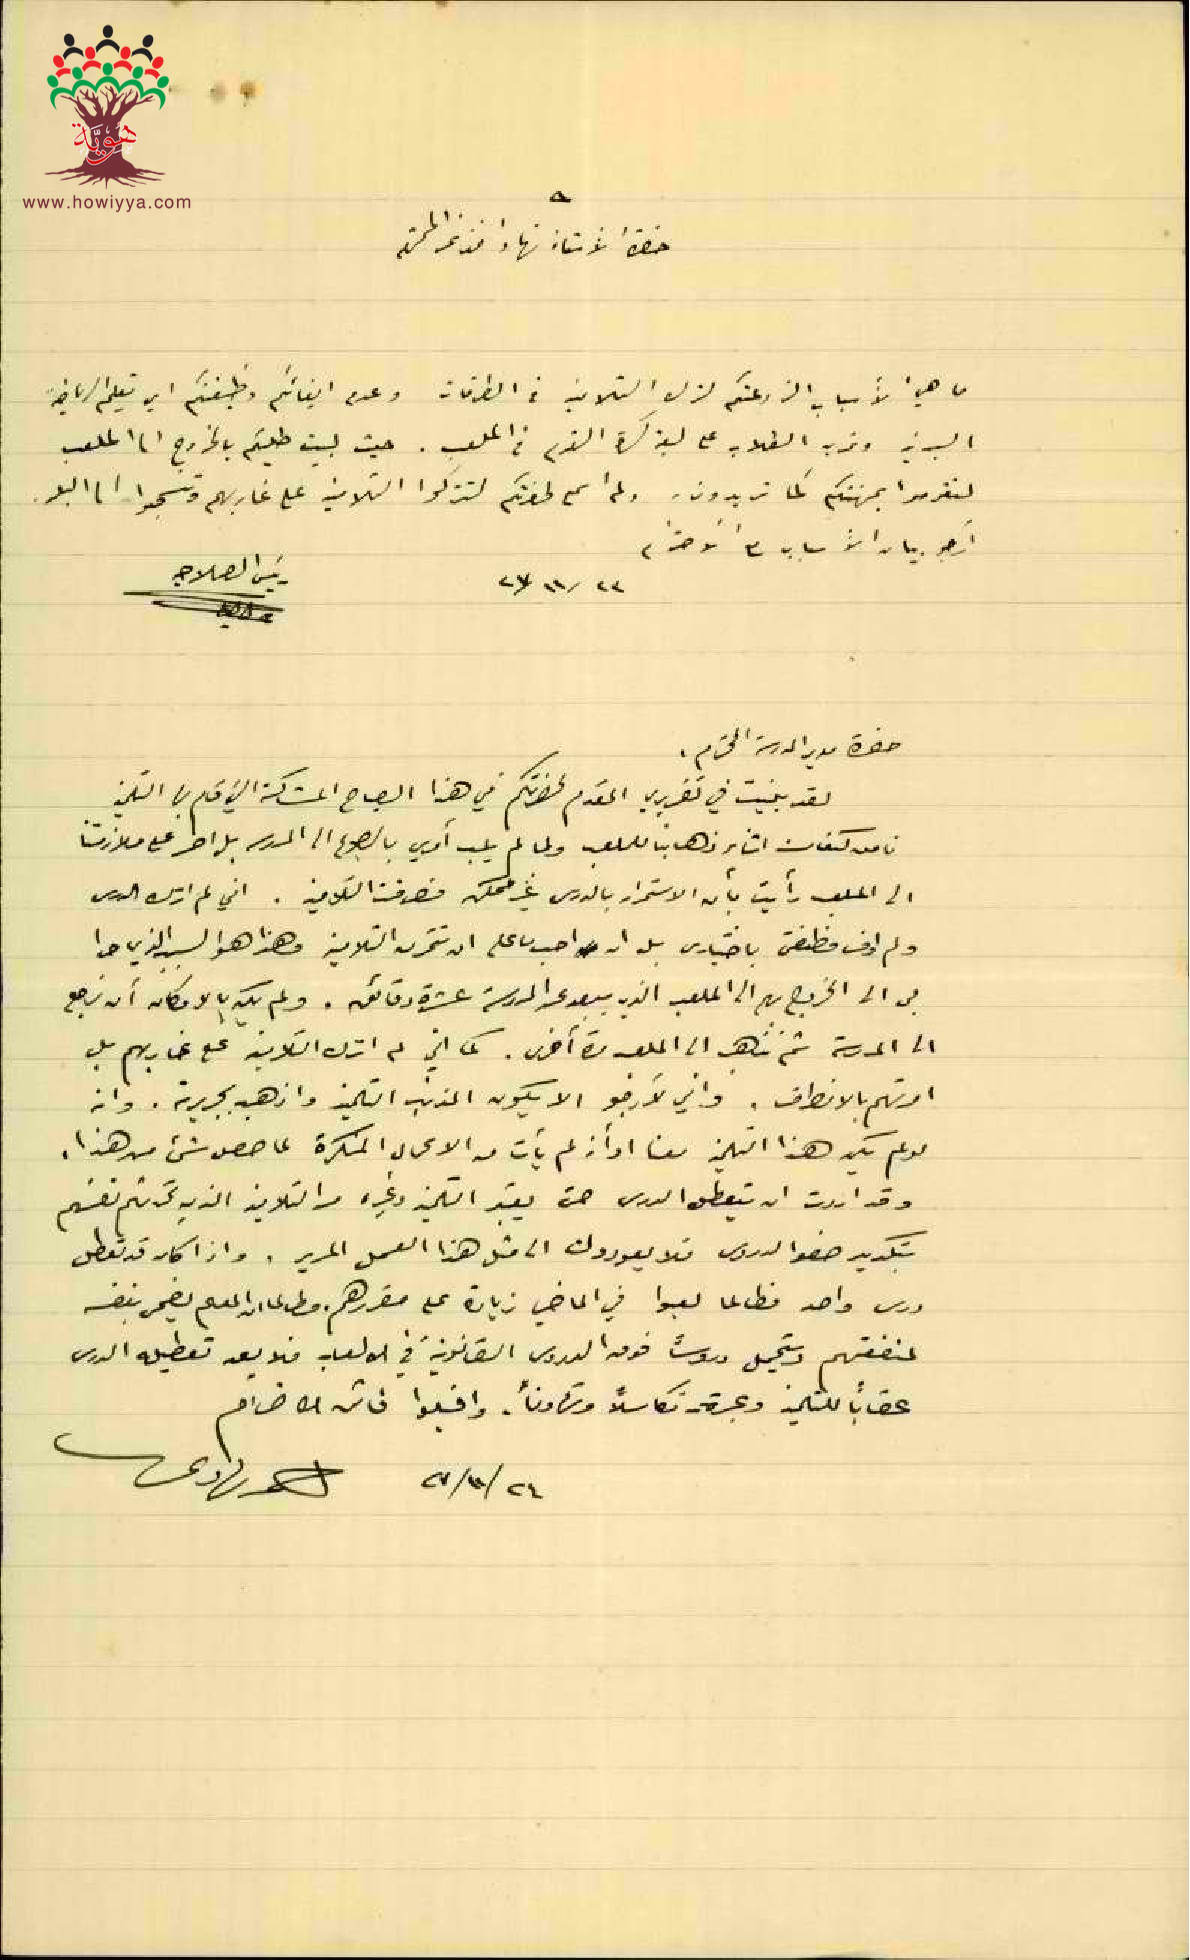 هوية
www.howiyya.com
حضرة الأستاذ نهاد افندي المحترم
ما هي الأسباب التي دعتكم لترك التلاميذ في الطرقات وعدم ايفائكم وظيفتكم اي تعليم الرياضة
البدنية وتدريب الطلاب على لعبة كرة القدم في الملعب. حيث لبيت طلبتكم بالخروج الى الملعب
لتقوموا بمهنتكم كما تريدون. ولم اسمح لحضرتكم لتتركوا التلاميذ على غاربهم وتنسحبوا الى البلد.
أرجو بيان الأسباب مع الاحترام
٢٣/١١/٢٧
رئيس الصلاحية
حضرة مدير المدرسة المحترم.
لقد بينت في تقريري المقدم لحضرتكم في هذا الصباح المشكلة التي قام بها التلميذ
اثناء ذهابنا للملعب ولما لم يلب أمري بالرجوع الى المدرسة بل اصر على ملازمتنا
الى الملعب رأيت بأن الاستمرار بالدرس غير ممكن فصرفت التلاميذ. اني لم اترك الدرس
ولم اوف وظيفتي باختياري بل ان احب ما علي ان تتمرن التلاميذ وهذا هو السبب الذي حدا
بي الى الخروج بهم الى الملعب الذي يبعد عن المدرسة عشرة دقائق. ولم يكن بالامكان أن نرجع
الى المدرسة ثم نذهب الى الملعب مرة أخرى. كما اني لم اترك التلاميذ على غاربهم بل
امرتهم بالانصراف. واني لأرجو الا يكون المذنب التلميذ واذهب بجريرته. وانه
لو لم يكن هذا التلميذ معنا او أنه لم يأت من الاعمال المنكرة لما حصل شئ من هذا.
وقد اردت ان يتعطل الدرس حتى يعتبر التلميذ وغيره من التلاميذ الذين تحدثهم نفسهم
بتكدير صفو الدروس فلا يعودون الى مثل هذا العمل المرير. واذا كان قد تعطل
درس واحد فطالما لعبوا في الماضي زيادة على مقررهم وطالما ان المعلم يضحي بنفسه
لمنفعتهم ويتحمل دروساً فوق الدروس القانونية في الالعاب فلا يعد تعطيله الدرس
عقاباً للتلميذ وعبرة تكاسلاً وتهاوناً. واقبلوا فائق الاحترام
٢٤/١١/٢٧